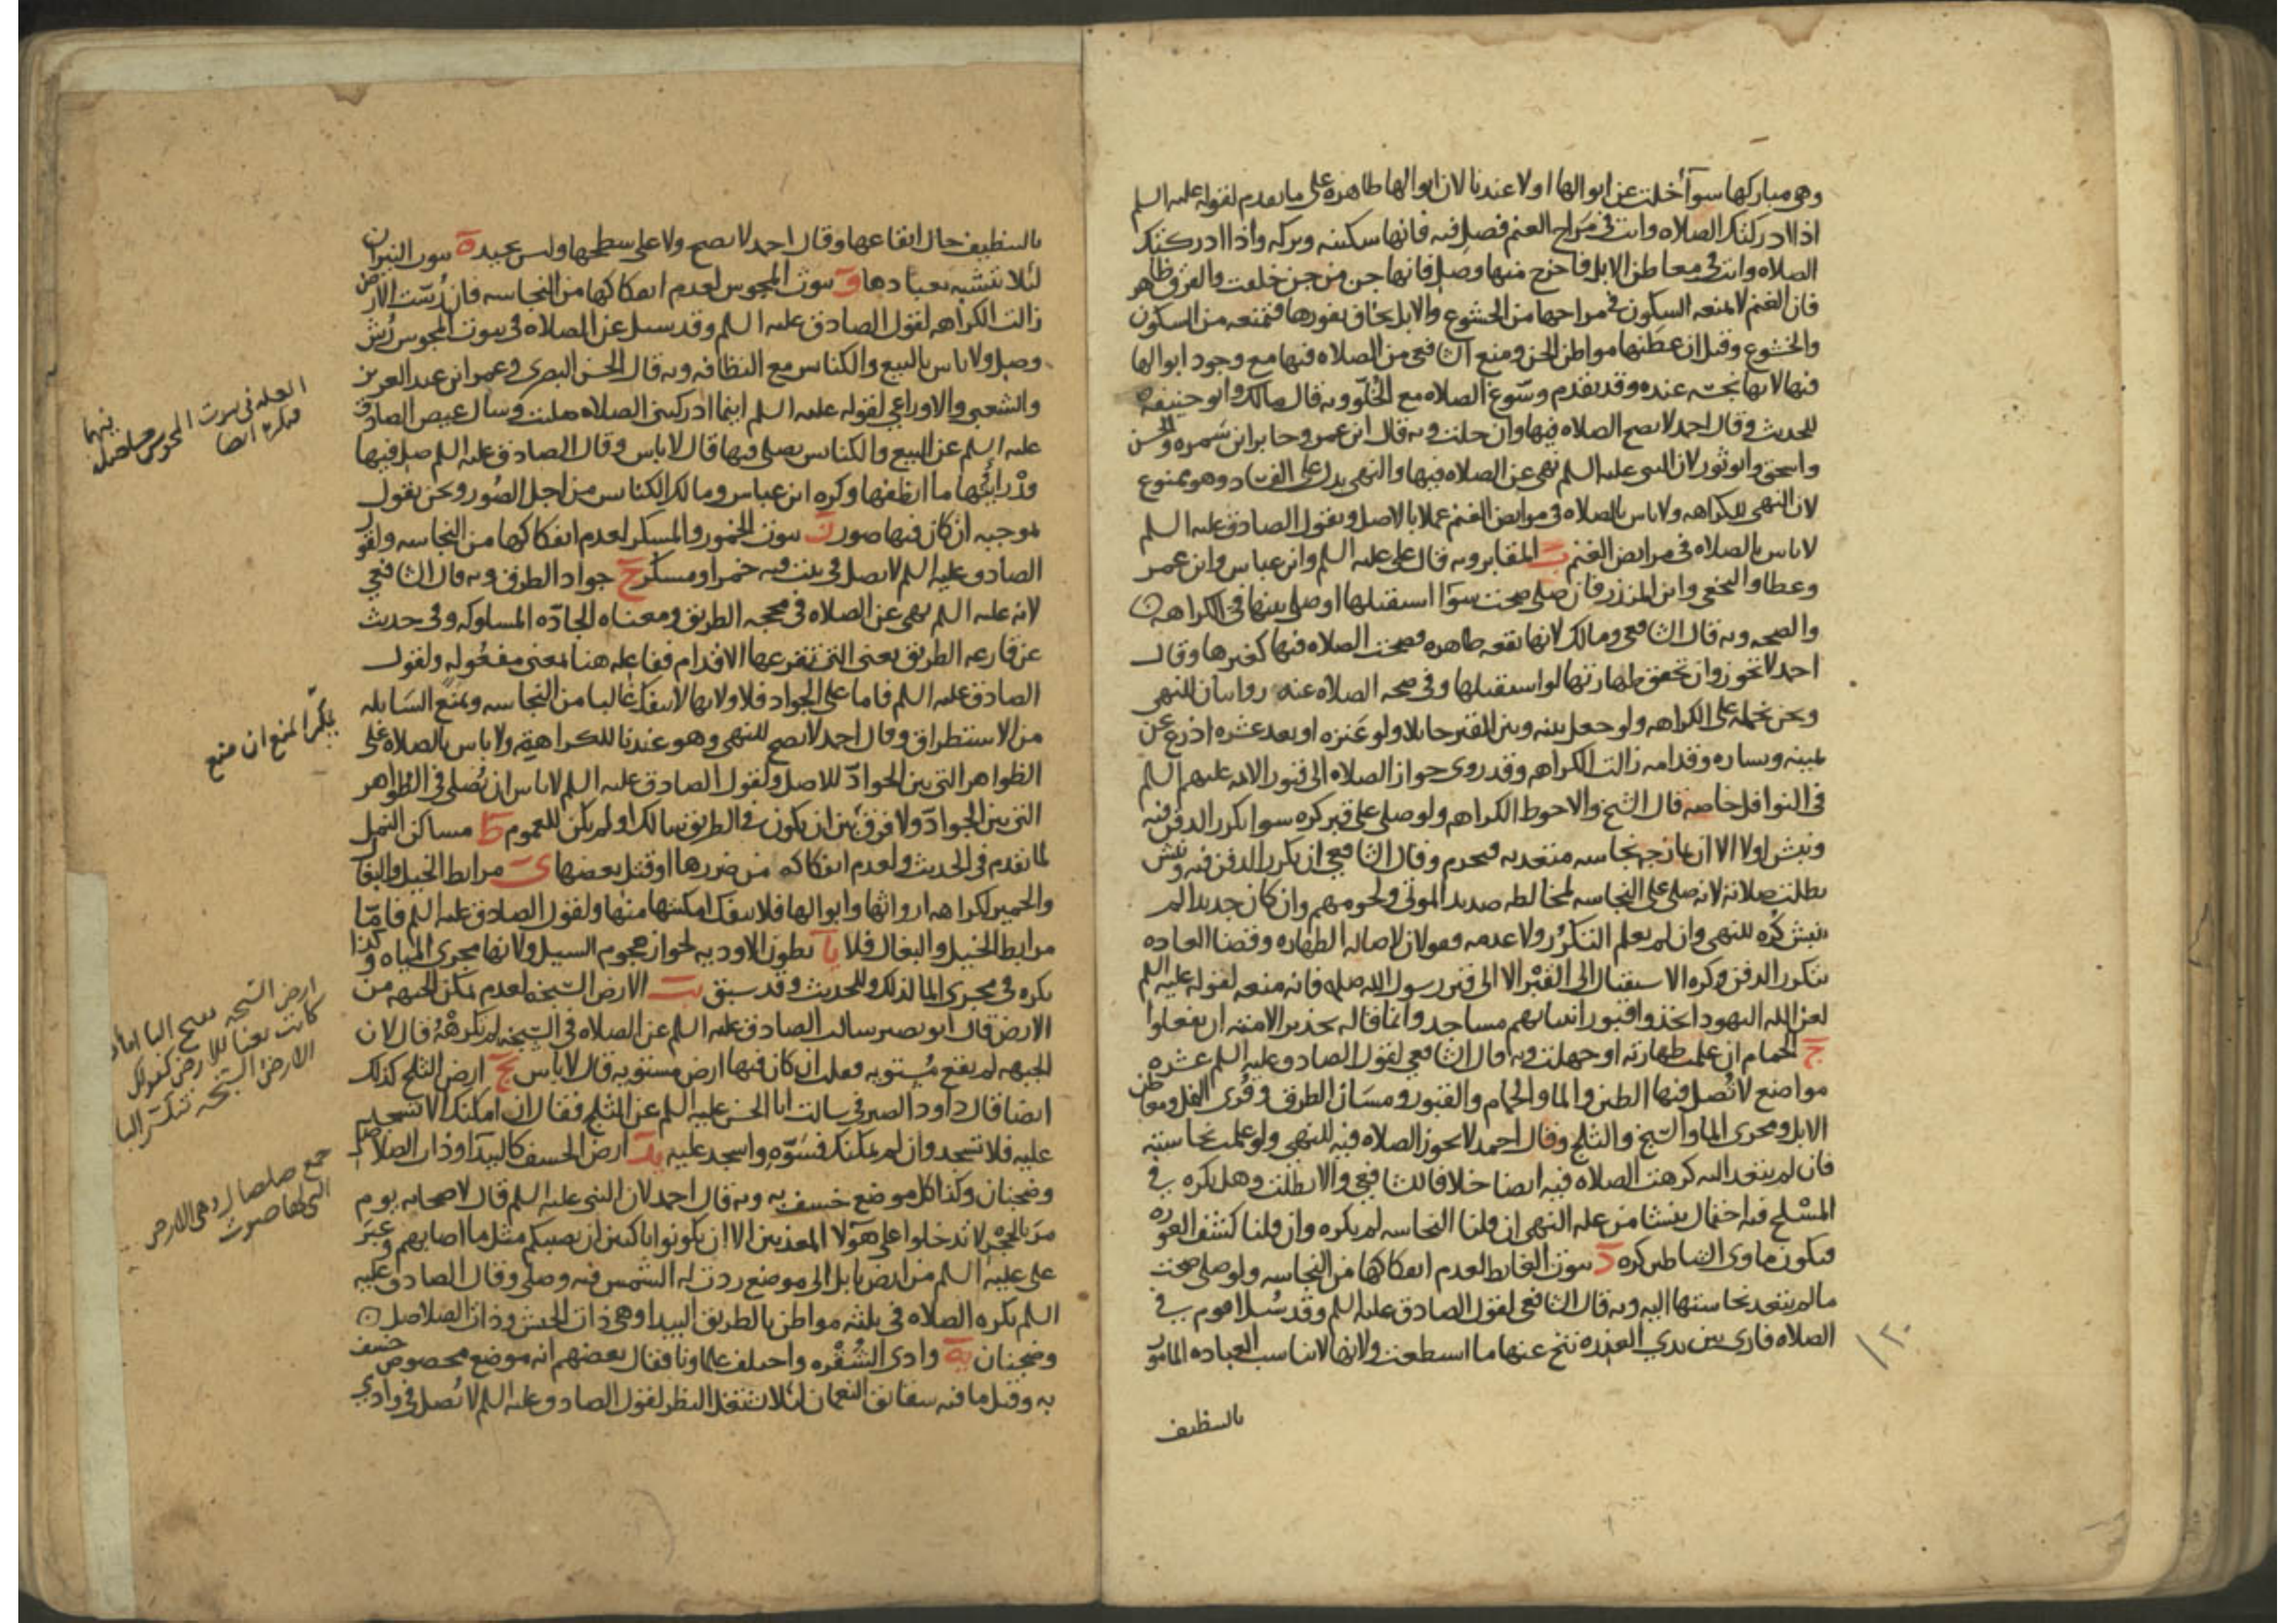 وهي مباركها سوآ أخلت عن ابوالها او لا عندنا لان ابوالها طاهره على ما تقدم لقوله عليه السلم
اذا ادركتك الصلاه وانت في مراح الغنم فصل فيه فانها سكينه وبركه واذا ادركتك
الصلاه وانت في معاطن الابل فاخرج منها وصل فانها جن من جن خلقت والفرق ظاهر
فان الغنم لا تمنعه السكون في مراحها من الخشوع والابل يخاف نفورها فتمنعه من السكون
والخشوع وقيل ان عطنها مواطن الجن ومنع الشافعي من الصلاه فيها مع وجود ابوالها
فيها لانها نجسه عنده وقد تقدم وسوغ الصلاه مع الخلو وبه قال مالك وابو حنيفه
للحديث وقال احمد لا تصح الصلاه فيها وان خلت وبه قال ابن عمر وجابر ابن سمره والحسن
واسحق وابو ثور لان النبي عليه السلم نهى عن الصلاه فيها والنهي يدل على الفساد وهو ممنوع
لان النهي للكراهه ولا باس بالصلاه في مرابض الغنم عملا بالاصل وبقول الصادق عليه السلم
لا باس بالصلاه في مرابض الغنم ب المقابر وبه قال علي عليه السلم وابن عباس وابن عمر
وعطا والنخعي وابن المنذر فان صلى صحت سوآ استقبلها او صلى بينها في الكراهه
والصحه وبه قال الشافعي ومالك لانها بقعه طاهره فصحت الصلاه فيها كغيرها وقال
احمد لا تجوز وان تحقق طهارتها لو استقبلها وفي صحه الصلاه عنه روايتان للنهي
ونحن نحمله على الكراهه ولو جعل بينه وبين القبر حايلا ولو عنزه او بعد عشره اذرع عن
يمينه ويساره وقدامه زالت الكراهه وقد روي جواز الصلاه الى قبور الايمه عليهم السلم
في النوافل خاصه قال الشيخ والاحوط الكراهه ولو صلى على قبر كره سوا تكرر الدفن فيه
ونبش او لا الا ان نجاسه متعديه فيحرم وقال الشافعي ان تكرر الدفن فيه ونبش
بطلت صلاته لانه صلى على النجاسه لمخالطه صديد الموتى ولحومهم وان كان جديدا لم
ينبش كره للنهي وان لم يعلم التكرر ولا عدمه فقولان لاصاله الطهاره وقضا العاده
بتكرر الدفن وكره الاستقبال الى القبر الا الى قبر رسول الله صلى فانه منعه لقوله عليه السلم
لعن الله اليهود اتخذوا قبور انبيائهم مساجد وانما قاله تحذيرا لامته ان يفعلوا
ج الحمام ان علمت طهارته او جهلت وبه قال الشافعي لقول الصادق عليه السلم عشره
مواضع لا تصل فيها الطين والما والحمام والقبور ومسان الطرق وقرى النمل ومعاطن
الابل ومجرى الما والسبخ والثلج وقال احمد لا تجوز الصلاه فيه للنهي ولو علمت نجاسته
فان لم يتعد اليه كرهت الصلاه فيه ايضا خلافا للشافعي والا بطلت وهل تكره في
المسلخ فيه احتمال ينشا من عله النهي ان قلنا النجاسه لم يكره وان قلنا كشف العوره
فيكون ماوى الشياطين كره د بيوت الغايط لعدم انفكاكها من النجاسه ولو صلى صحت
ما لم تتعد نجاستها اليه وبه قال الشافعي لقول الصادق عليه السلم وقد سئل اقوم في
الصلاه فارى بين يدي العذره تنح عنها ما استطعت ولانها لا تناسب العباده المامور
١٢٠
بالتنظيف
بالتنظيف حال ايقاعها وقال احمد لا تصح ولا على سطحها وليس بجيد ه بيوت النيران
لئلا يتشبه بعبادها و بيوت المجوس لعدم انفكاكها من النجاسه فان رشت الارض
زالت الكراهه لقول الصادق عليه السلم وقد سيل عن الصلاه في بيوت المجوس رش
وصل ولا باس بالبيع والكنايس مع النظافه وبه قال الحسن البصري وعمر ابن عبد العزيز
والشعبي والاوزاعي لقوله عليه السلم اينما ادركتني الصلاه صليت وسال عيص الصادق
عليه السلم عن البيع والكنايس يصلى فيها قال لا باس وقال الصادق عليه السلم صل فيها
ما انظفها وكره ابن عباس ومالك الكنايس من اجل الصور ونحن نقول
بموجبه ان كان فيها صور ز بيوت الخمور والمسكر لعدم انفكاكها من النجاسه ولقول
الصادق عليه السلم لا تصل في بيت فيه خمر او مسكر ح جواد الطرق وبه قال الشافعي
لانه عليه السلم نهى عن الصلاه في محجه الطريق ومعناه الجاده المسلوكه وفي حديث
عن قارعه الطريق يعني التي تقرعها الاقدام ففاعله هنا بمعنى مفعوله ولقول
الصادق عليه السلم فاما على الجواد فلا ولانها لا تنفك غالبا من النجاسه ويمنع السابله
من الاستطراق وقال احمد لا تصح للنهي وهو عندنا للكراهة ولا باس بالصلاه على
الظواهر التي بين الجواد للاصل ولقول الصادق عليه السلم لا باس ان تصلي في الظواهر
التي بين الجواد ولا فرق بين ان يكون في الطريق سالك او لم يكن للعموم ط مساكن النمل
لما تقدم في الحديث ولعدم انفكاكه من ضررها او قتل بعضها ي مرابط الخيل والبغال
والحمير لكراهه ارواثها وابوالها فلا تنفك امكنتها منها ولقول الصادق عليه السلم فاما
مرابط الخيل والبغال فلا يا بطون الاوديه لجواز هجوم السيل ولانها مجرى المياه وكذا
يكره في مجرى الما لذلك وللحديث وقد سبق يب الارض السبخه لعدم تمكن الجبهه من
الارض قال ابو بصير سالت الصادق عليه السلم عن الصلاه في السبخه لم تكرهه قال لان
الجبهه لم يقع مستويه فقلت ان كان فيها ارض مستويه قال لا باس يج ارض الثلج كذلك
ايضا قال داود الصيرفي سالت ابا الحسن عليه السلم عن الثلج فقال ان امكنك الا تسجد
عليه فلا تسجد وان لم يمكنك فسوه واسجد عليه يد ارض الخسف كالبيدآ وذات الصلاصل
وضجنان وكذا كل موضع خسف به وبه قال احمد لان النبي عليه السلم قال لاصحابه يوم
مر بالحجر لا تدخلوا على هولآ المعذبين الا ان تكونوا باكين ان يصيبكم مثل ما اصابهم وعبر
علي عليه السلم من ارض بابل الى موضع ردت له الشمس فيه وصلى وقال الصادق عليه
السلم تكره الصلاه في ثلثه مواطن بالطريق البيدا وهي ذات الجيش وذات الصلاصل
وضجنان يه وادي الشقره واختلف علماونا فقال بعضهم انه موضع مخصوص خسف
به وقيل ما فيه شقايق النعمان لئلا يشتغل النظر لقول الصادق عليه السلم لا تصل في وادي
العله في بيوت المجوس
فيكره ايضا
يكره المنع ان منع
ارض السبخه بفتح البا اما اذا
كانت نعتا للارض كقولك
الارض السبخه بكسر البا
جمع صلصال وهي الارض
التي لها صوت